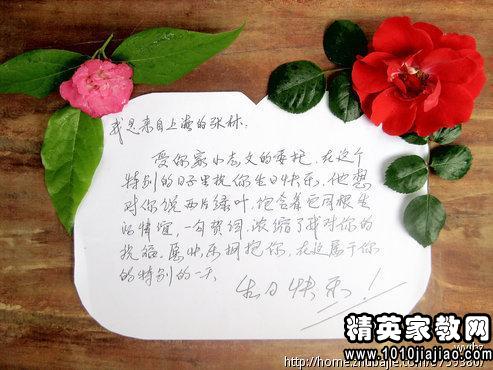 我是来自上海的张林:
受你家小志文的委托,在这个
特别的日子里祝你生日快乐,他想
对你说两片绿叶,饱含着它同根生
的情谊,一句贺词,浓缩了我对你的
祝福。愿快乐拥抱你,在这属于你
的特别的一天
生日快乐!
精英家教网
www.1010jiajiao.com